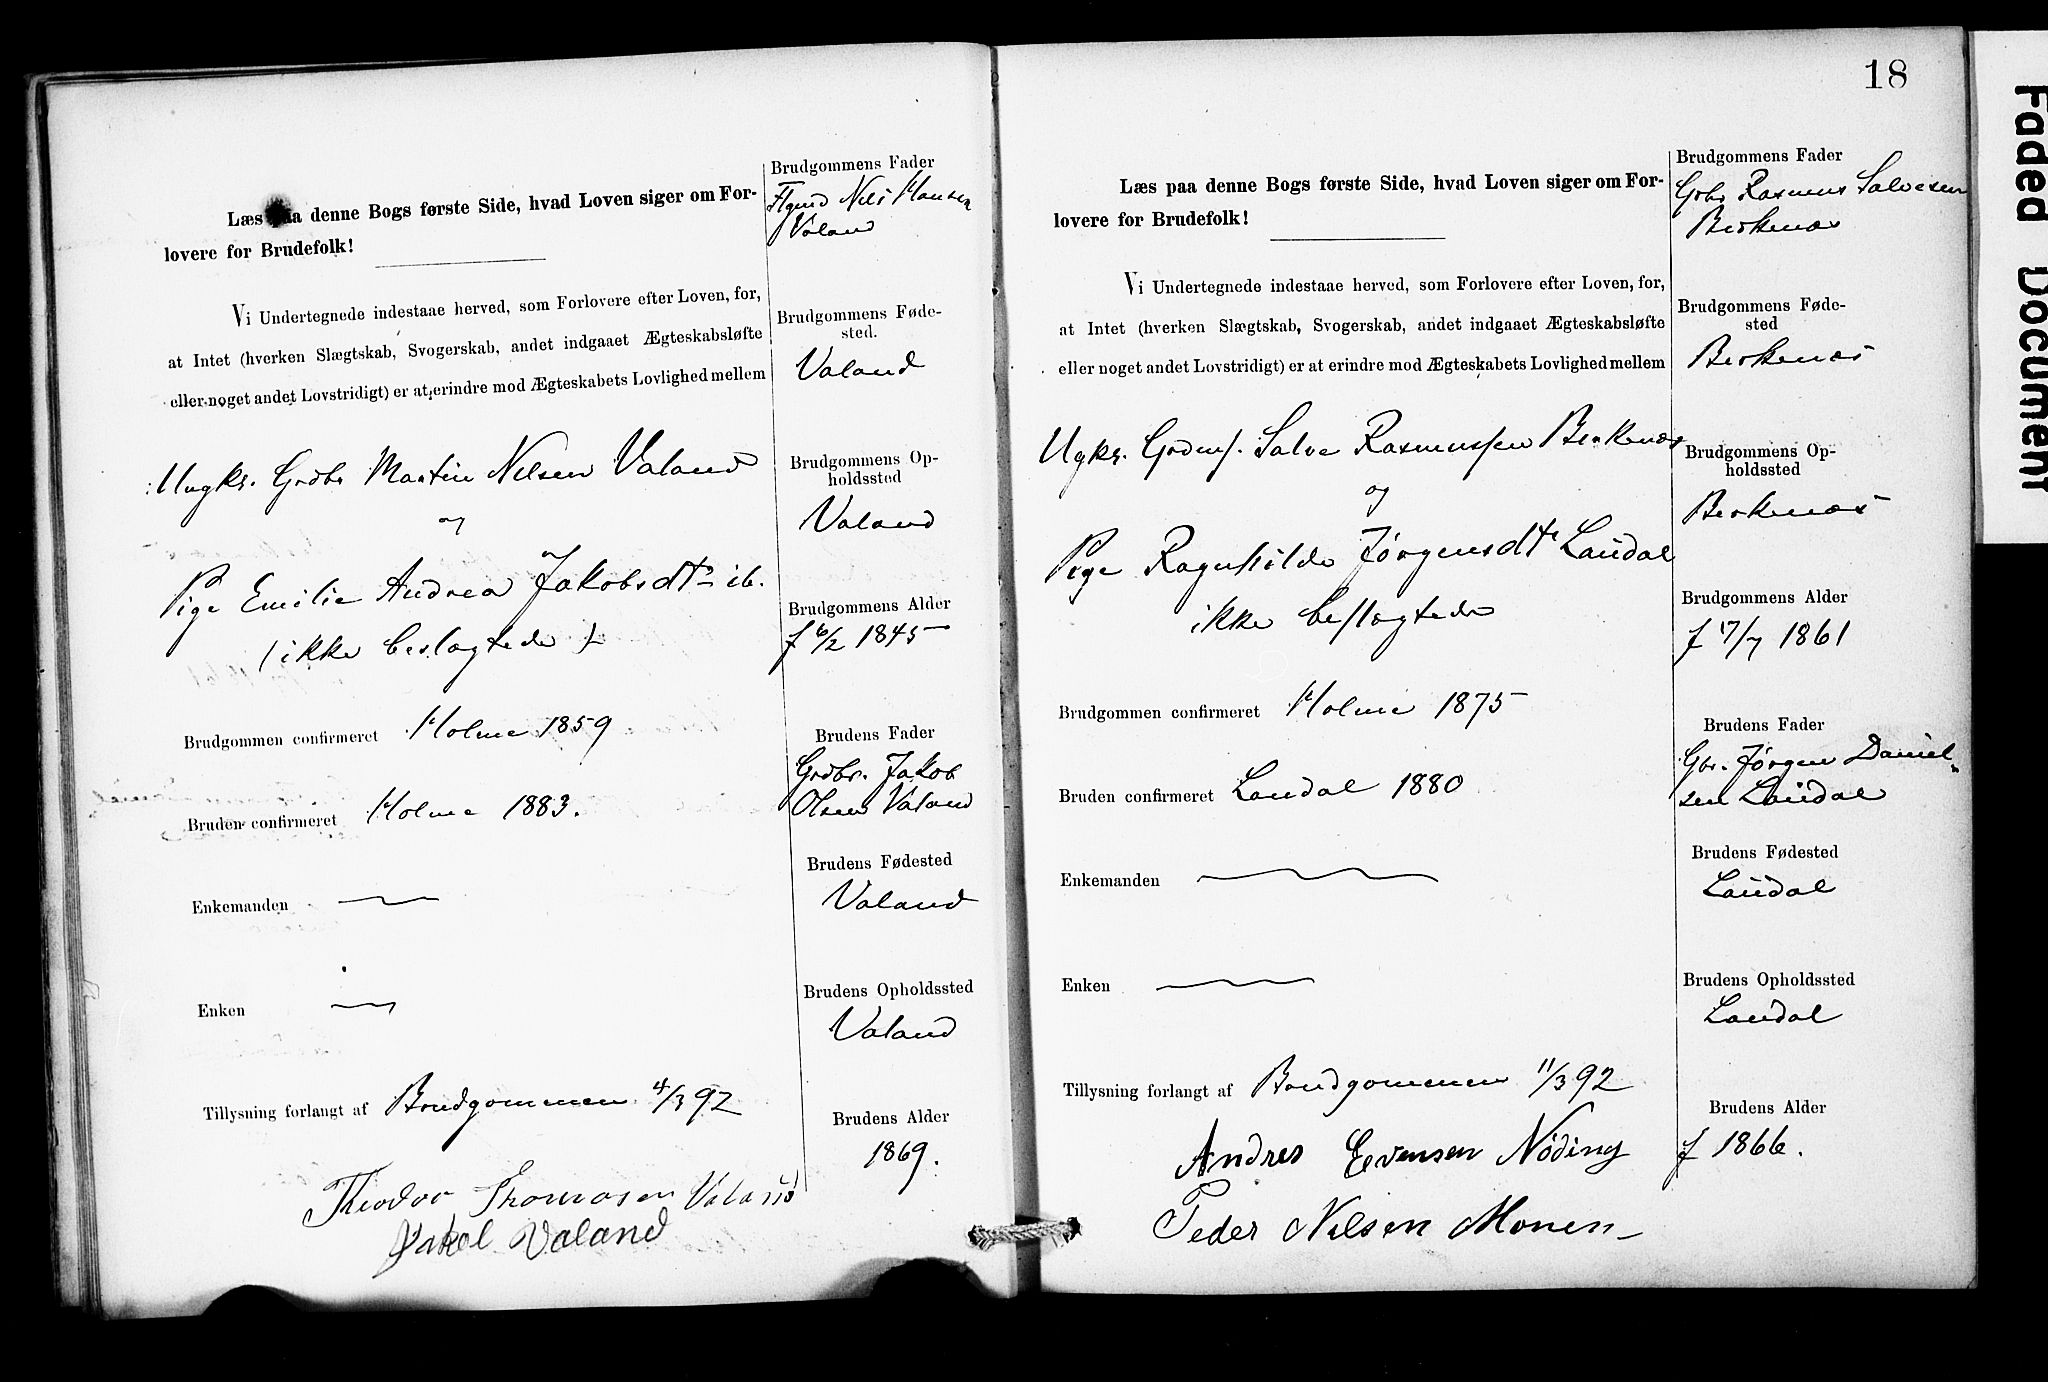 Læs paa denne Bogs første Side, hvad Loven siger om For-
lovere for Brudefolk!
Vi Undertegnede indestaae herved, som Forlovere efter Loven, for,
at Intet (hverken Slægtskab, Svogerskab, andet indgaaet Ægteskabsløfte
eller noget andet Lovstridigt) er at erindre mod Ægteskabets Lovlighed mellem
Ungkr. Grdbr Martin Nilsen Valand
og
Pige Emilie Andrea Jakobsdtr ib.
(ikke beslægtede)
Brudgommen confirmeret Holme 1859
Bruden confirmeret Holme 1883.
Enkemanden
Enken
Tillysning forlangt af Brudgommen 4/3 92
Theodor Thomasen Valand
Jakob Valand
Brudgommens Fader
Nils Hansen
Valand
Brudgommens Føde-
sted.
Valand
Brudgommens Op-
holdssted
Valand
Brudgommens Alder
f 6/2 1845
Brudens Fader
Grdbr. Jakob
Olsen Valand
Brudens Fødested
Valand
Brudens Opholdssted
Valand
Brudens Alder
1869.
18
Læs paa denne Bogs første Side, hvad Loven siger om For-
lovere for Brudefolk!
Vi Undertegnede indestaae herved, som Forlovere efter Loven, for,
at Intet (hverken Slægtskab, Svogerskab, andet indgaaet Ægteskabsløfte
eller noget andet Lovstridigt) er at erindre mod Ægteskabets Lovlighed mellem
Ugkr. Grdmf. Salve Rasmussen Berkenæs
og
Pige Ragnhilde Jørgensdtr Laudal
ikke beslægtede
Brudgommen confirmeret Holme 1875
Bruden confirmeret Laudal 1880
Enkemanden
Enken
Tillysning forlangt af Brudgommen 11/3 92
Andres Evensen Nøding
Peder Nilsen Monen
Brudgommens Fader
Grbr Rasmus Salvesen
Berkenæs
Brudgommens Føde-
sted
Berkenæs
Brudgommens Op-
holdssted
Berkenæs
Brudgommens Alder
f 17/7 1861
Brudens Fader
Gbr. Jørgen Daniel-
sen Laudal
Brudens Fødested
Laudal
Brudens Opholdssted
Laudal
Brudens Alder
f 1866.
Faded Document